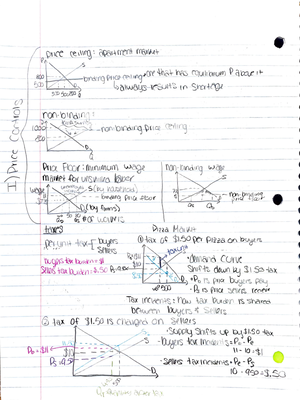 1) Price Controls
price ceiling: apartment market
P
S
800
500
D
Q
binding price ceiling: one that has equilibrium P above it
↳ always results in shortage
non-binding:
1000
800
non-binding price ceiling
Price Floor: minimum wage
market for unskilled labor
wage
S (by households)
binding price floor
D (by firms)
# of workers
non-binding
wage
Taxes
per unit tax
buyers
sellers
buyers tax burden = $1
sellers tax burden = $.50
Pizza Market
① tax of $1.50 per pizza on buyers
• demand curve
shifts down by $1.50 tax
• Pb is price buyers pay
• Ps is price sellers receive
Tax incidents: how tax burden is shared
between buyers & sellers
② tax of $1.50 is charged on sellers
• supply shifts up by $1.50 tax
• buyers tax incidents = Pb - Pe
11 - 10 = $1
• sellers tax incidents = Pe - Ps
10 - 9.50 = $.50
Pb = $11
$10
Ps = 9.50